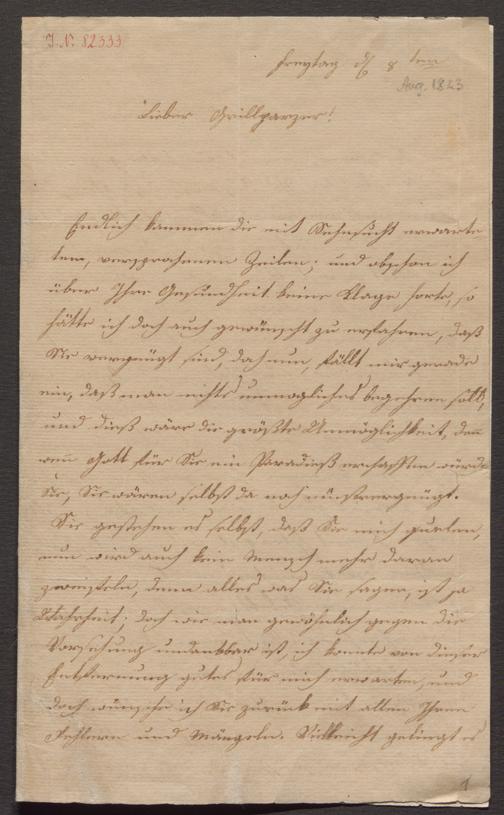 I.N. 82333
Freytag d 8 ten
Aug. 1823
Lieber Grillparzer!
Endlich kammen die mit Sehnsucht erwarte
ten, versprochenen Zeilen; und obschon ich
über Ihre Gesundheit keine Klage hörte, so
hätte ich doch auch gewünscht zu erfahren, daß
Sie vergnügt sind, doch nun, fällt mir gerade
ein, daß man nichts unmögliches begehren soll,
und dieß wäre die größte Unmöglichkeit, den̅
wen̅ Gott für Sie ein Paradieß erschaffen würde
Sie wären selbst da noch mißvergnügt.
Sie gestehen es selbst, daß Sie mich quelen,
nun wird auch kein Mensch mehr daran
zweifeln, denn alles was Sie sagen, ist ja
Wahrheit; doch wie man gewöhnlich gegen die
Vorsehung undankbar ist, ich konnte von dieser
Entfernung gutes für mich erwarten, und
doch wünsche ich Sie zurück mit allen Ihren
Fehlern und Mängeln. Vielleicht gelingt es
1